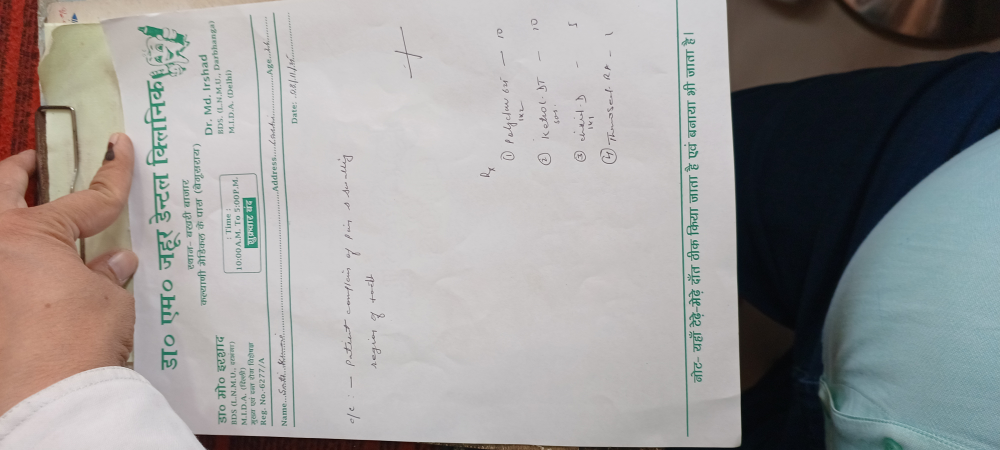 डा० एम० जहूर डेन्टल क्लिनिक
स्थान- बखरी बाजार
कल्याणी मेडिकल के पास (बेगूसराय)
डा० मो० इरशाद
BDS (L.N.M.U., दरभंगा)
M.I.D.A. (दिल्ली)
मुख एवं दन्त रोग विशेषज्ञ
Reg. No.-6277/A
: Time :
10:00 A.M. To 5:00 P.M.
शुक्रवार बंद
Dr. Md. Irshad
BDS. (L.N.M.U., Darbhanga)
M.I.D.A. (Delhi)
Name Address Age
Date:
c/c :— Patient complain of pain & swelling
region of tooth
Rx
① 625 — 10
1x2
② Ketorol DT — 10
sos
③ D — 5
1x1
④ Thermoseal R.A. — 1
नोट- यहाँ टेढ़े-मेढ़े दाँत ठीक किया जाता है एवं बनाया भी जाता है।